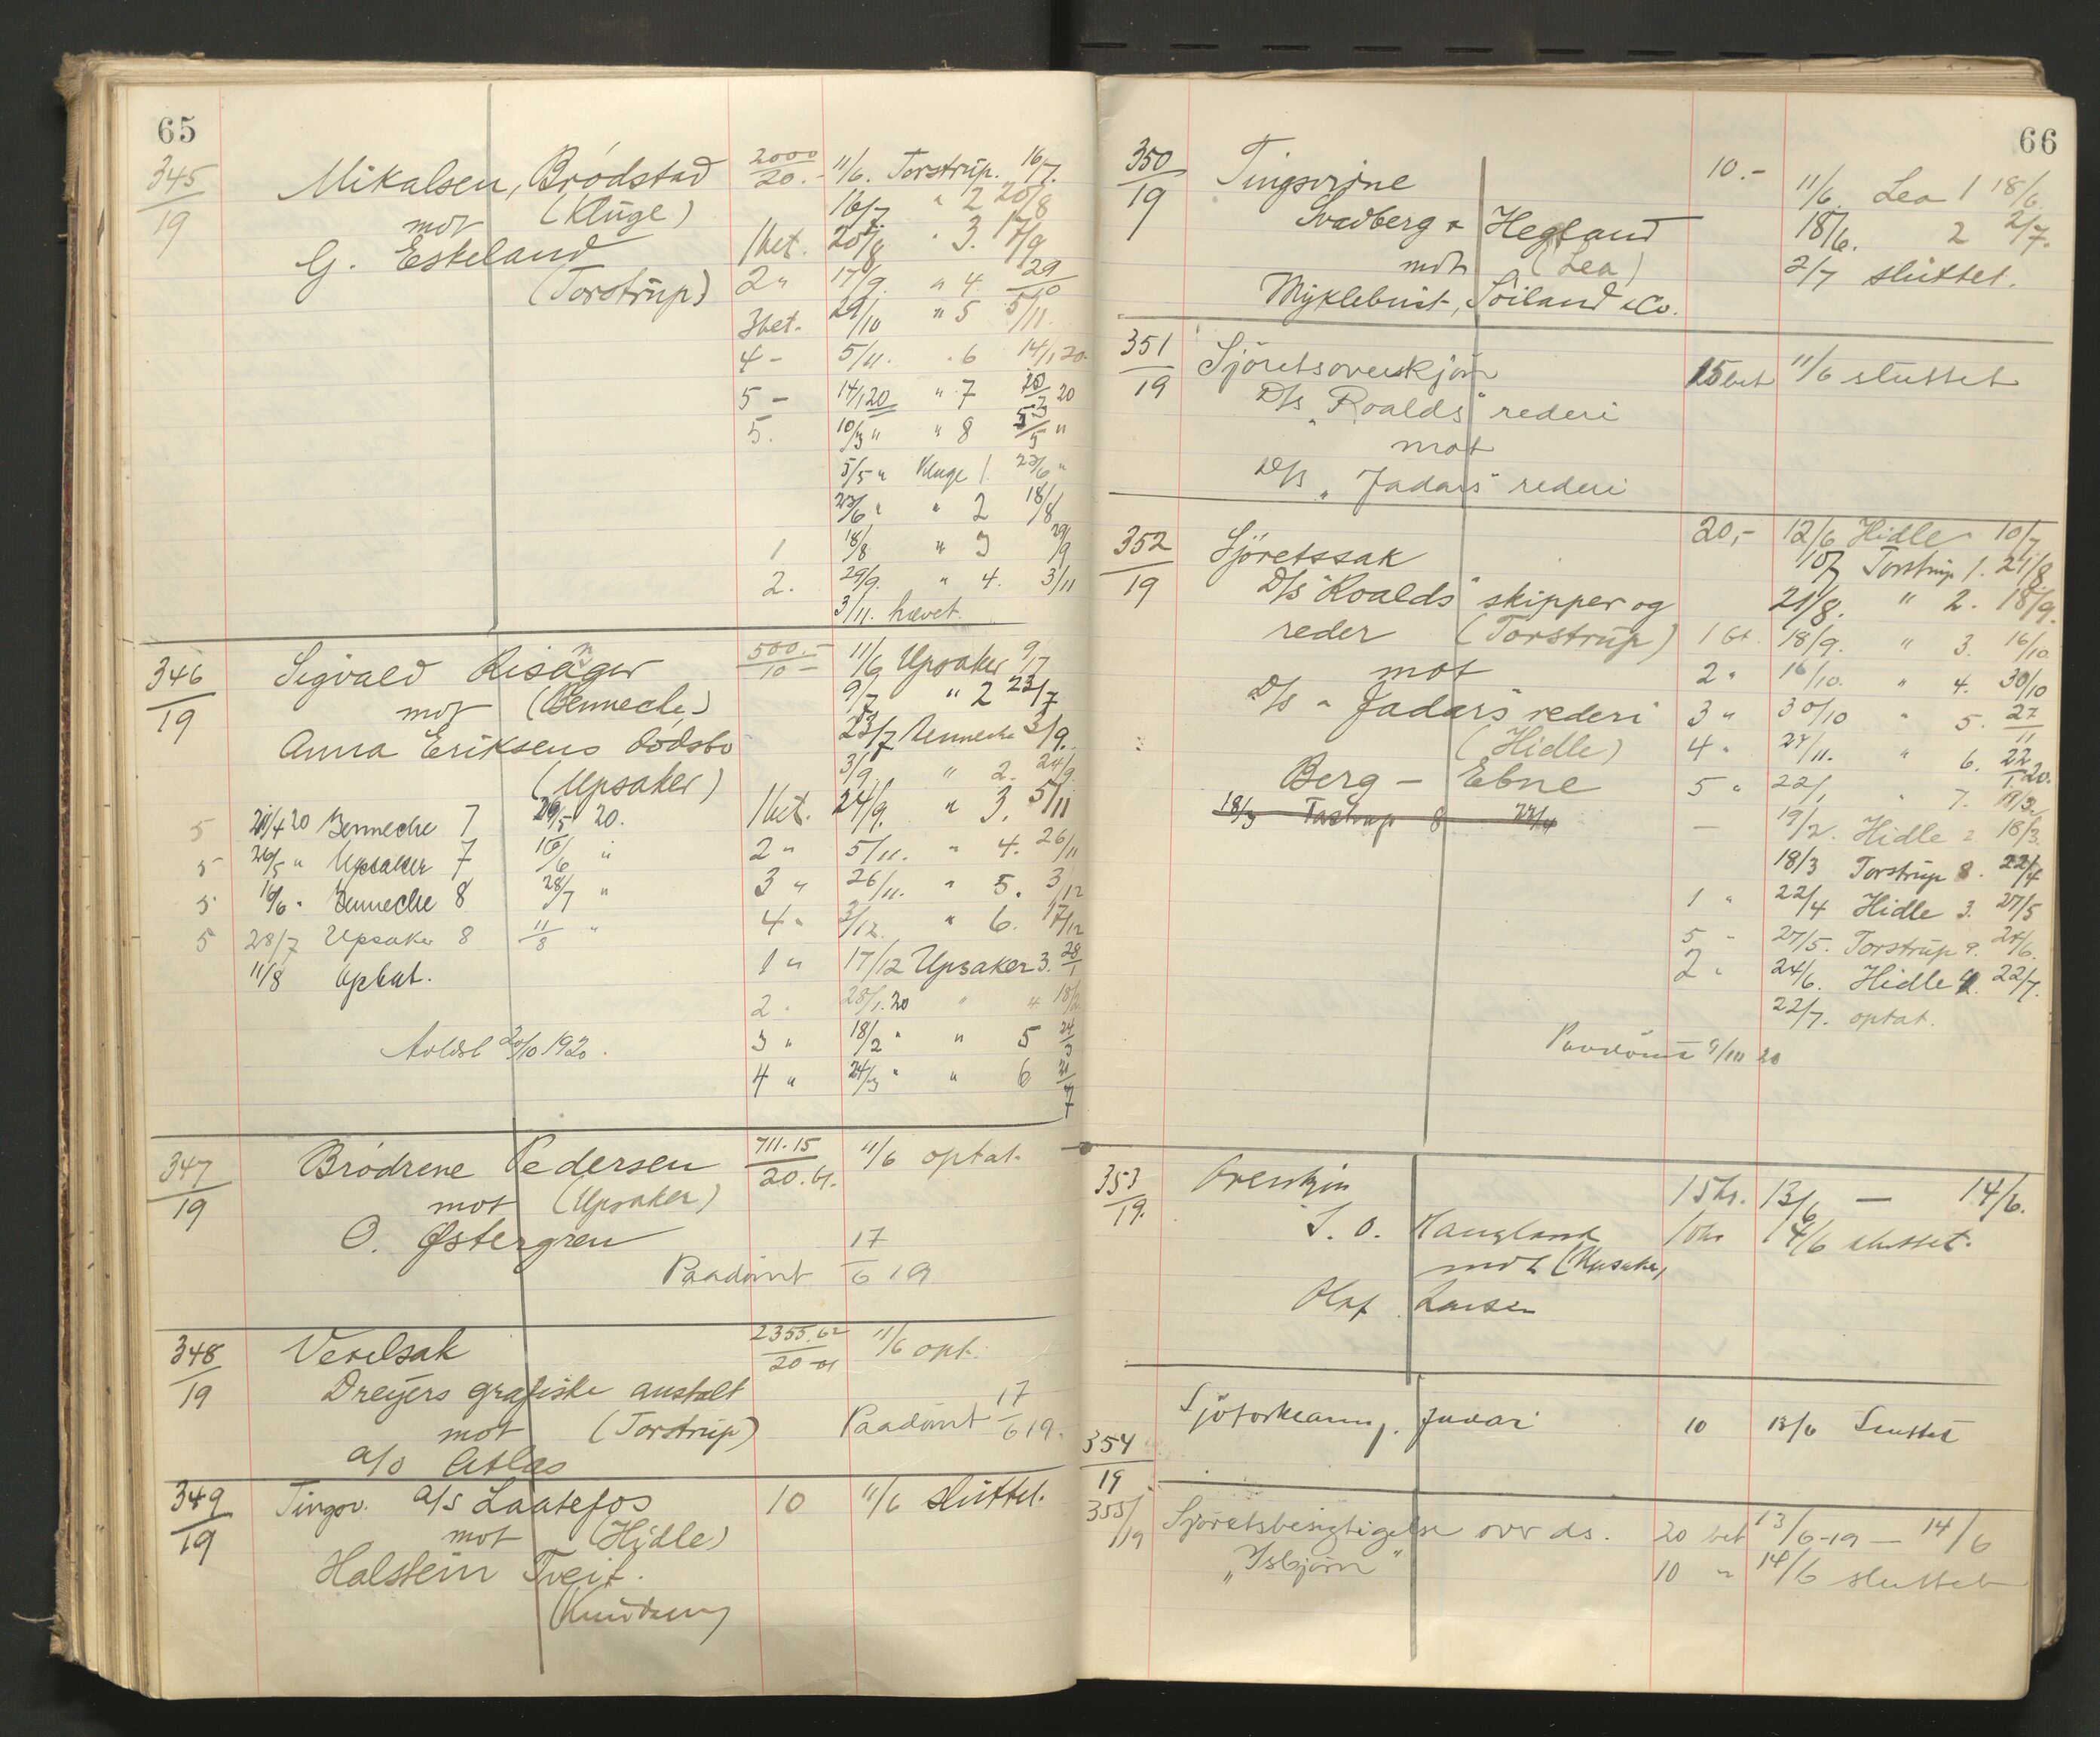 65
345/19 Mikalsen, Brödstad 2000/20.- 11/6. Torstrup. 16/7.
mot (Kluge) 16/7 " 2 20/8
G. Eskeland 1 bet. 20/8 " 3. 17/9
(Torstrup) 2 " 17/9. " 4. 29/10
3 bet. 29/10 " 5 5/11.
4 - 5/11. " 6 14/1 20.
5 - 14/1 20 " 7 20
5. 10/3 " " 8 5/5 "
5/5 " Kluge 1. 23/6 "
23/6 " " 2 18/8
1 18/8 " 3 29/9
2. 29/9. " 4. 3/11
3/11. hævet.
346/19 Sigvald Risånger 500.-/10 - 11/6 Upsaker 9/7
mot (Benneche) 9/7 " 2 23/7
Anna Eriksens dödsbo 23/7 Benneche 3/9.
(Upsaker) 3/9. " 2. 24/9.
1 bet. 24/9. " 3. 5/11
2 " 5/11. " 4. 26/11
3 " 26/11. " 5. 3/12
4 " 3/12. " 6. 17/12
1 " 17/12 Upsaker 3. 28/1
2 " 28/1. 20 " 4 18/2
3 " 18/2 " " 5 24/3
4 " 24/3 " " 6 21/4
5 21/4 20 Bennecke 7 26/5 20.
5 26/5 " Upsaker 7 16/6 "
5 16/6 " Bennecke 8 28/7 "
5 28/7 Upsaker 8 11/8 "
11/8 optat.
Avldst 20/10 1920.
347/19 Brödrene Pedersen 711.15/20.01. 11/6 optat.
mot (Upsaker)
O. Østergren
Paadömt 17/6 19
348/19 Vexelsak 2355.62/20-01 11/6 opt.
Dreyers grafiske anstalt
mot (Torstrup) Paadömt 17/6 19.
a/s Atlas
349/19 Tingsv. a/s Laatefos 10 11/6 sluttet.
mot (Hidle)
Halstein Tveit.
(Knudsen)
66
350/19 Tingsvidne 10.- 11/6. Lea 1 18/6.
Svadberg & Hegland 18/6. 2 2/7.
mot (Lea) 2/7 sluttet.
Myklebust, Söiland & Co.
351/19 Sjöretsoverskjön 15 bet 11/6 sluttet
D/s "Roalds" rederi
mot
D/s "Jadars" rederi
352/19 Sjöretssak 20,- 12/6 Hidle 10/7
D/s "Roalds" skipper og 10/7 Torstrup 1. 21/8
reder (Torstrup) 21/8. " 2. 18/9.
mot 1 bt. 18/9. " 3. 16/10
D/s "Jadars" rederi 2 " 16/10. " 4. 30/10
(Hidle) 3 " 30/10 " 5. 27/11
Berg - Ebne 4 " 27/11. " 6. 22/1 20.
18/3 Torstrup 8 22/4
5 " 22/1 " 7. 19/2
- 19/2. Hidle 2 18/3.
18/3 Torstrup 8. 22/4
1 " 22/4 Hidle 3. 27/5
5 - 27/5. Torstrup 9. 24/6.
2 " 24/6. Hidle 4. 22/7.
22/7. optat.
Paadömt 9/10 20
353/19. Overskjön 15 kr. 13/6 - 14/6.
S. O. Haugland 10 kr 14/6 sluttet.
mot (Upsaker)
Olaf Larsen
354/19 Sjöforklaring. Jadar 10 13/6 Sluttet
355/19 Sjöretsbesigtigelse over ds. 20 bet 13/6-19 - 14/6
"Isbjörn" 10 " 14/6 sluttet